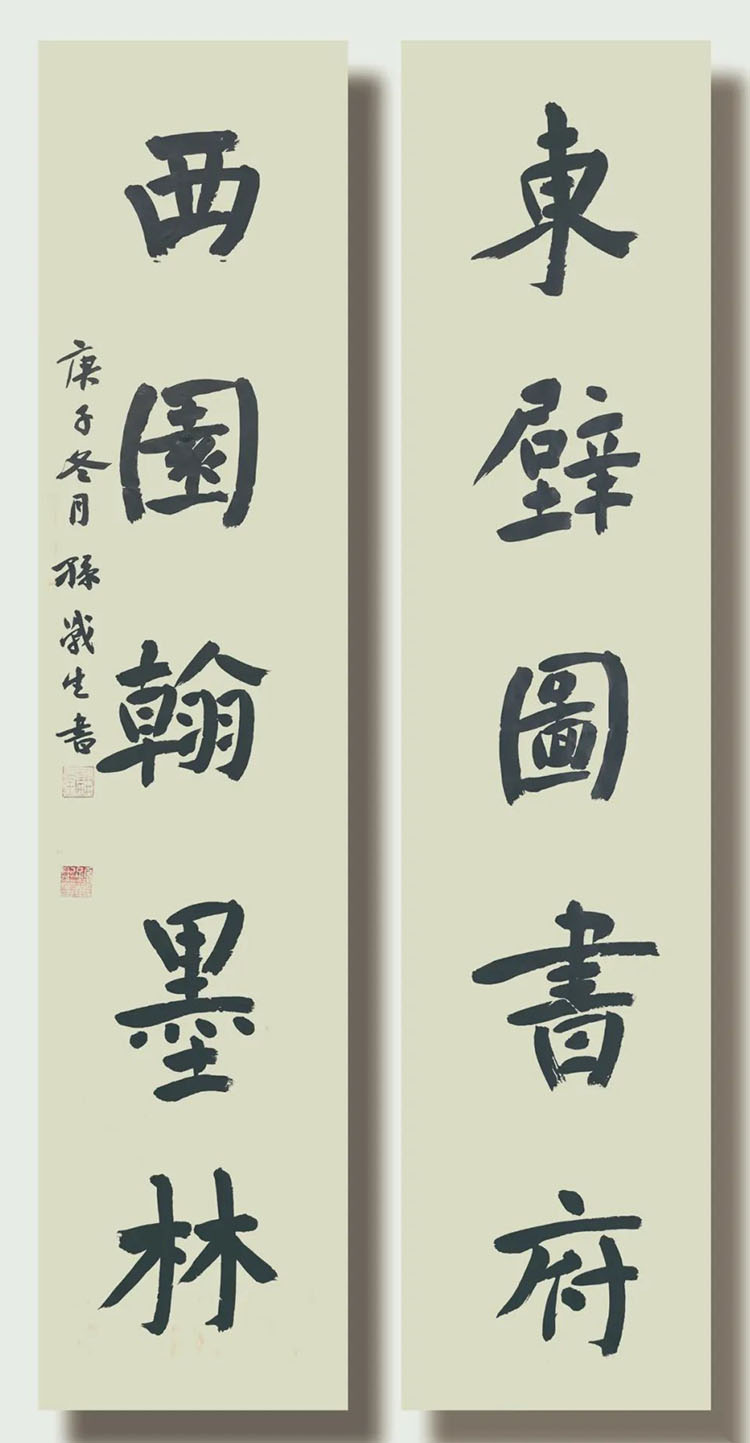 東壁圖書府
西園翰墨林
庚子冬月孫戰生書